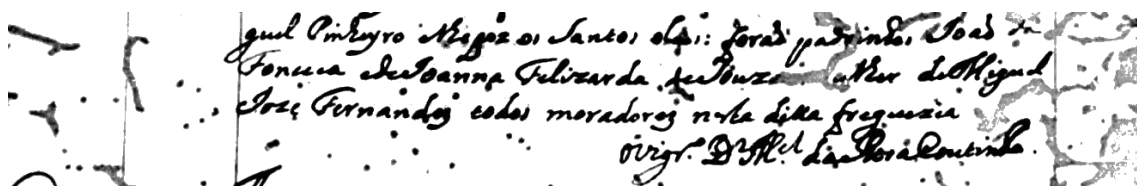 guel Pinheyro e lhe poz os Santos oleos: foraõ padrinhos Joaõ da
Fonceca e de Joanna Felizarda de Souza mulher de Miguel
Joze Fernandes todos moradores nesta ditta freguezia
O Vigr.º D.or M.el da Coutinho.